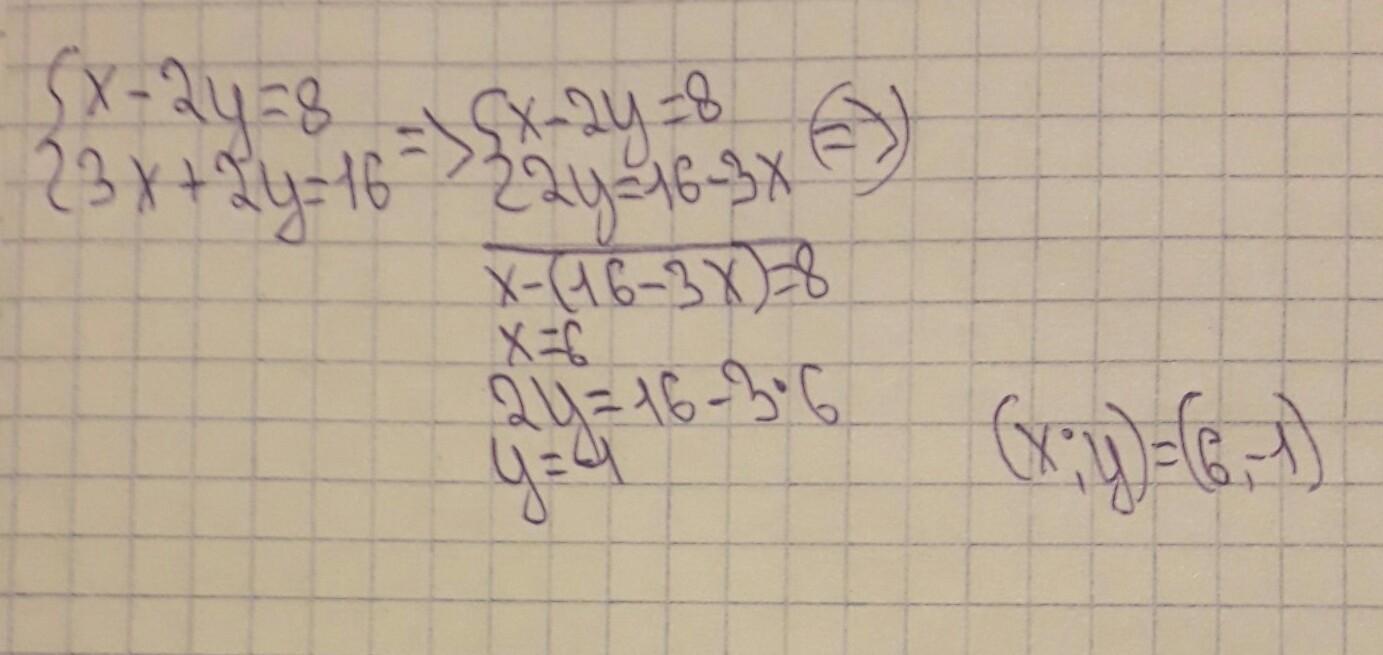 {x-2y=8
{3x+2y=16 => {x-2y=8
{2y=16-3x (=>)
x-(16-3x)=8
x=6
2y=16-3·6
y=-1
(x;y)=(6,-1)